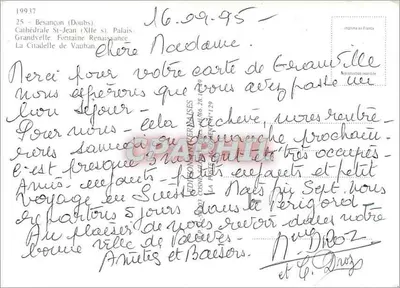 19937
25 - Besançon (Doubs)
Cathédrale St-Jean (XIIe s). Palais
Granvelle Fontaine Renaissance
La Citadelle de Vauban
16.09.95-
chère Madame.
Merci pour votre carte de Granville
nous espérons que vous avez passé un
bon séjour-
Pour nous- cela s'achève, nous rentre-
rons samedi ou dimanche prochain-
C'est presque mois qui très occupés-
Amis- enfants- petits enfants et petit
voyage en Suisse- Mais fin Sept. nous
repartons 5 jours dans le Périgord-
Au plaisir de vous revoir dans notre
bonne ville de
Amitiés et Baisers.
Droz
et C. Droz